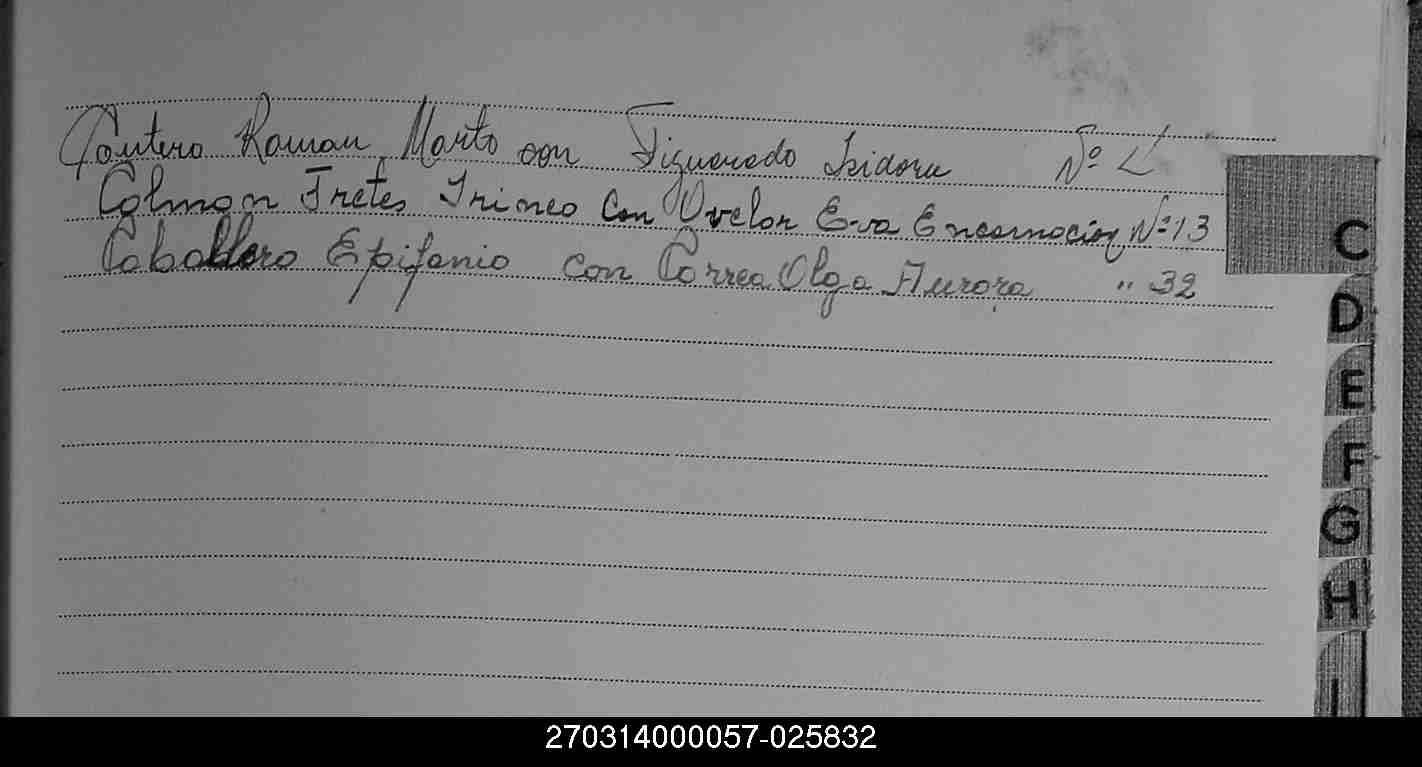 Cantero Roman, Marto con Figueredo Isidora Nº 4
Colman Fretes Irineo Con Ovelar Eva Encarnación Nº 13
Caballero Epifanio con Correa Olga Aurora " 32
C
D
E
F
G
H
I
270314000057-025832